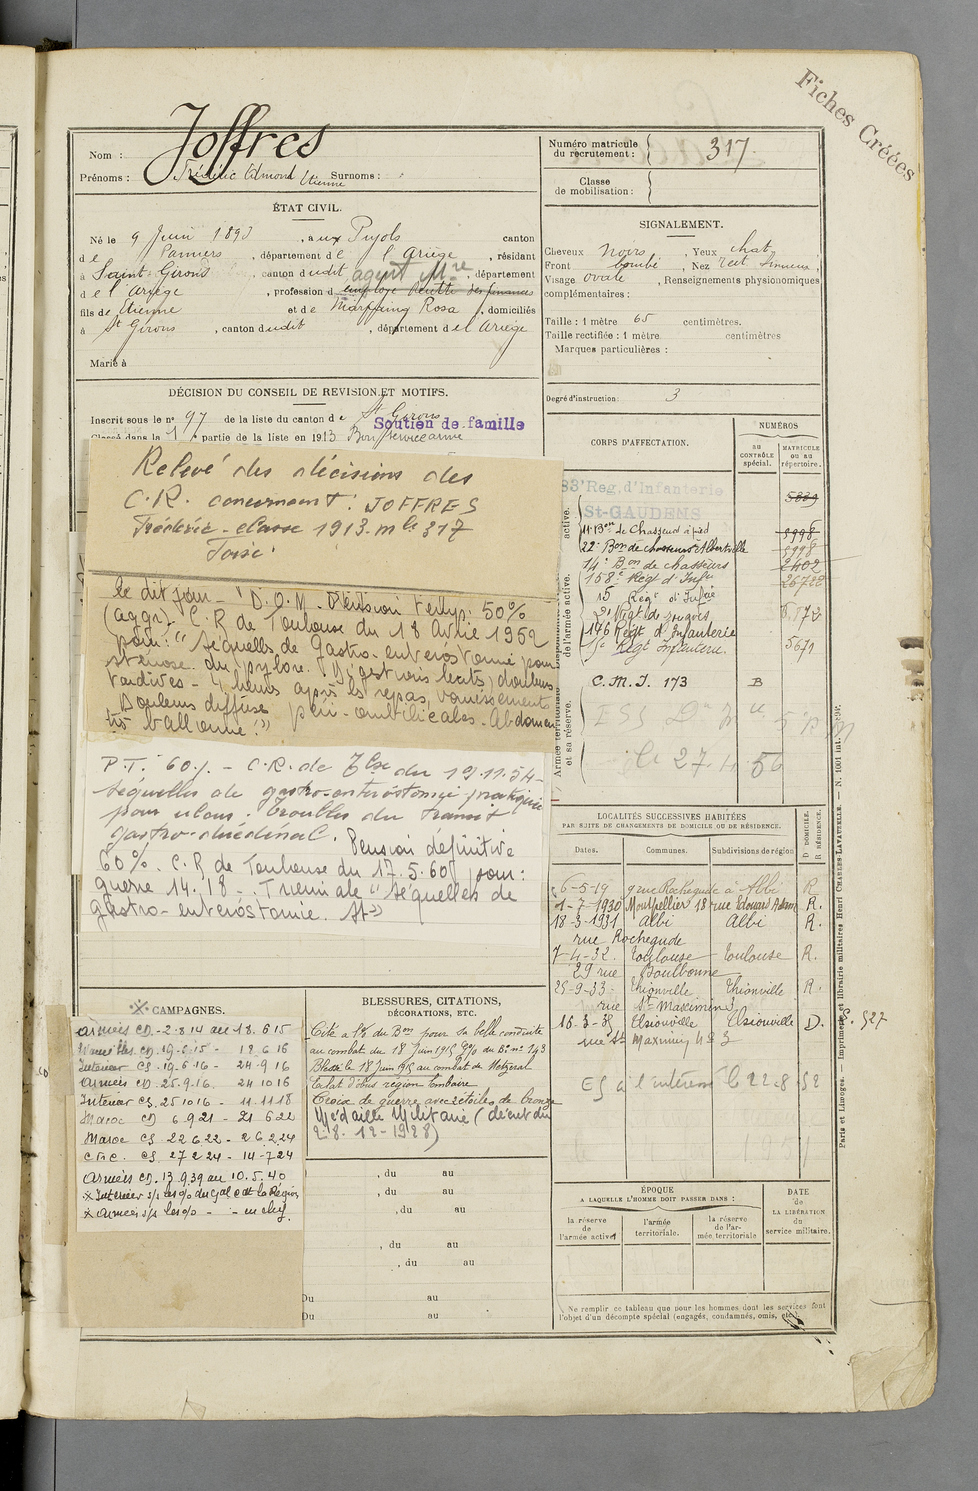 Fiches Créées
Nom : Joffres
Prénoms : Frédéric Edmond Etienne Surnoms :
Numéro matricule du recrutement : 317
Classe de mobilisation :
ÉTAT CIVIL.
Né le 9 Juin 1893, à aux Pujols canton
de Pamiers, département de l'Ariège, résidant
à Saint-Girons, canton dudit, département
de l'Ariège, profession d
fils de Etienne et de Marfaing Rosa, domiciliés
à St Girons, canton dudit, département de l'Ariège
Marié à
SIGNALEMENT.
Cheveux Noirs, Yeux chat.
Front bombé, Nez rect. sinueux,
Visage ovale, Renseignements physionomiques
complémentaires :
Taille : 1 mètre 65 centimètres.
Taille rectifiée : 1 mètre centimètres
Marques particulières :
Degré d'instruction : 3
DÉCISION DU CONSEIL DE REVISION ET MOTIFS.
Inscrit sous le n° 97 de la liste du canton de St Girons
Soutien de famille
Classé dans la 1 partie de la liste en 1913 Bon service armé
Relevé des décisions des
C.R. concernant : JOFFRES
Frédéric - classe 1913 - mle 317
Foix
le dit jour - "D.O.M. - Pension temp. 50%
(aggr). C.R. de Toulouse du 18 Avril 1952
pour : "Séquelles de Gastro-entérostomie pour
sténose du pylore. Digestions lentes, douleurs
tardives - 4 heures après les repas, vomissements
Douleurs diffuses péri-ombilicales - Abdomen
très ballonné."
P.T. 60% - C.R. de Tlse du 19.11.54 -
Séquelles de gastro-entérostomie pratiquée
pour ulcus. Troubles du transit
gastro-duodénal. Pension définitive
60%. C.R. de Toulouse du 17.5.60 pour :
guerre 14.18 - "Séquelles de
gastro-entérostomie.
CORPS D'AFFECTATION.
NUMÉROS
au CONTRÔLE spécial.
MATRICULE ou au répertoire.
83e Rég. d'Infanterie
St-GAUDENS 5889
11e Bon de Chasseurs à pied 8998
22e Bon de chasseurs Albertville 8998
14e Bon de chasseurs 2402
158e Régt d'Infie
15 Régt d'Infie
2e Régt de zouaves
146 Régt d'Infanterie
Régt Infanterie 5671
C.M.I. 173 B
le 27.4.56
LOCALITÉS SUCCESSIVES HABITÉES
PAR SUITE DE CHANGEMENTS DE DOMICILE OU DE RÉSIDENCE.
Dates. Communes. Subdivisions de région D DOMICILE. R RÉSIDENCE.
6-5-19 9 rue Rochegude à Albi R
1-7-1930 Montpellier 18 rue Edouard Adam R.
18-3-1931 Albi Albi R.
rue Rochegude
7-4-32. Toulouse Toulouse R.
29 rue Boulbonne
25-9-33 Thionville Thionville R.
rue St Maximin 3
16-3-35 Thionville Thionville D.
rue St Maximin n° 3
P. 527
22-8-52
※ CAMPAGNES.
Armées CD - 2-8-14 au 18.6.15
CD. 19-6-15 - 18.6.16
Intérieur CS. 19-6-16 - 24-9-16
Armées CD. 25.9.16 24.10.16
Intérieur CS. 25.10.16 - 11.11.18
Maroc CD 6.9.21 - 21.6.22
Maroc CS. 22.6.22 - 26.2.24
CS. 27.2.24 - 14-7-24
Armées CD. 13.9.39 au 10.5.40
BLESSURES, CITATIONS,
DÉCORATIONS, ETC.
Cité à l'O. du Bon pour sa belle conduite
au combat du 18 Juin 1915 O/o du Bon n° 143
Blessé le 18 Juin 1915 au combat de Metzeral
Éclat d'obus région lombaire
Croix de guerre avec 2 étoiles de bronze
Médaille Militaire (décret du
28-12-1928)
, du au
, du au
, du au
, du au
, du au
Du au
Du au
ÉPOQUE
A LAQUELLE L'HOMME DOIT PASSER DANS :
la réserve de l'armée active
l'armée territoriale.
la réserve de l'armée territoriale
DATE de LA LIBÉRATION du service militaire.
Ne remplir ce tableau que pour les hommes dont les services font
l'objet d'un décompte spécial (engagés, condamnés, omis, etc.)
Paris et Limoges. — Imprimerie et librairie militaires Henri CHARLES-LAVAUZELLE. — N. 1001 int.